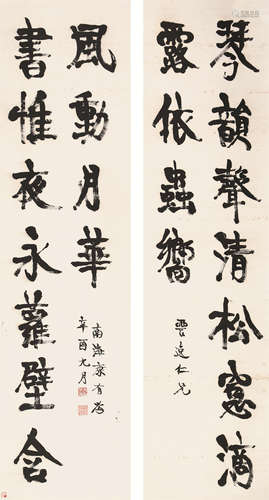 琴韻聲清松窓滴
露依蟲嚮
雲仁兄
書惟夜永蘿壁含
風動月華
南海康有為
辛酉九月